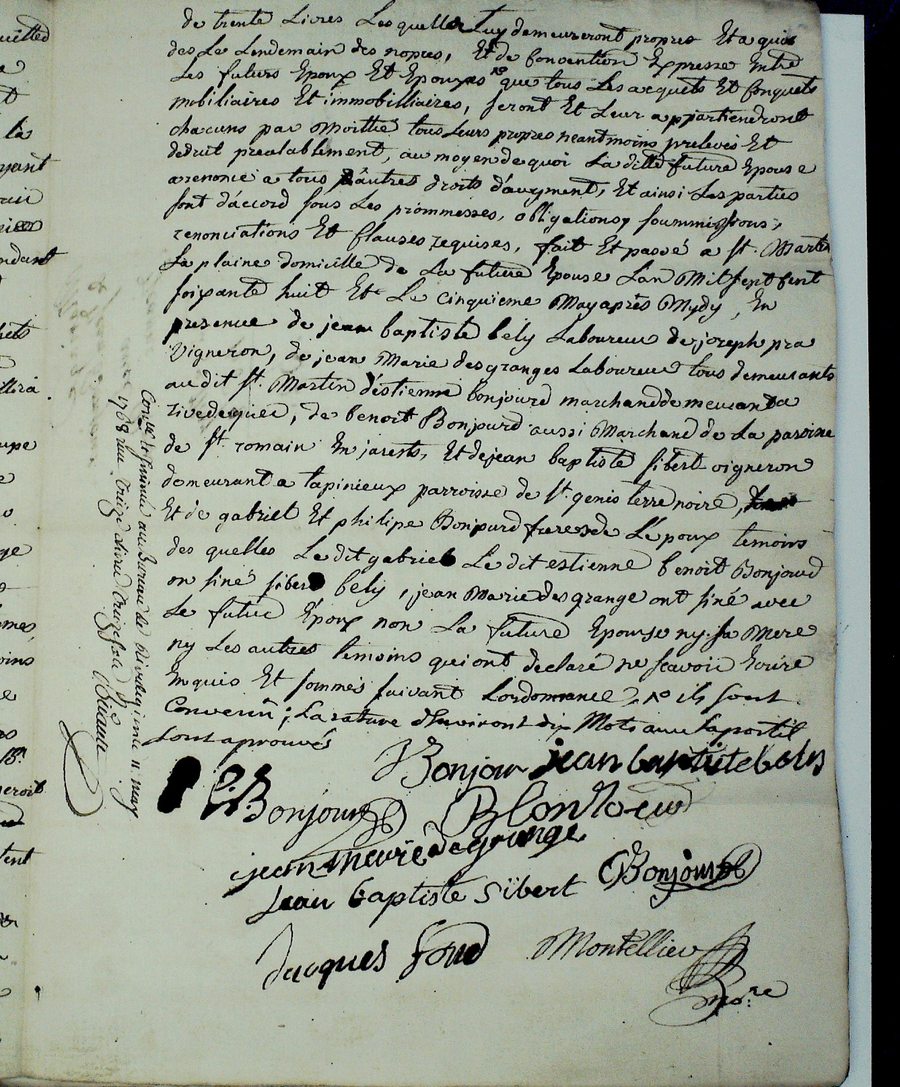 de trente Livres Lesquelles Luy demeureront propres Et aquis
des Le Lendemain des nopces, Et de Convention Expresse Entre
Les futurs Epoux Et Epouzes que tous Les acquets Et Conquets
mobiliaires Et immobilliaires, seront Et Leur appartiendront
chacuns par Moittié tous Leurs propres neantmoins prelevés Et
deduit prealablement, au moyen de quoi La ditte future Epouse
a renoncé a tous autres droits d'augment, Et ainsi Les parties
sont d'accord sous Les prommesses, obligations, soummissions,
renonciations Et Clauses requises, fait Et passé a St. Martin
La plaine domicille de La future Epouse Lan Mil sept Cent
soixante huit Et Le Cinquieme May apres Mydy, En
presence de jean baptiste bély Laboureur de joseph pra
vigneron, de jean Marie desgranges Laboureur tous demeurants
au dit St. Martin d'estienne bonjourd marchand demeurant a
rivedegier, de benoit Bonjourd aussi Marchand de La paroisse
de St. romain En jarests, Et de jean baptiste sibert vigneron
demeurant a tapinieux parroisse de St. genis terre noire,
Et de gabriel Et philipe Bonjourd freres de L'époux temoins
des quelles Le dit gabriel Le dit estienne benoit Bonjourd
on siné sibert bély, jean Marie desgrange ont siné avec
Le futur Époux non La future Epouse ny sa Mere
ny Les autres temoins qui ont declaré ne scavoir Ecrire
Enquis Et sommés suivant Lordonnance, ils sont
Convenu; La rature d'Environt dix Mots
sont aprouvés
Bonjour jean baptiste bely
Bonjour B Bonjour
jean marie degrange
Jean baptiste sibert Bonjour
Jacques Montellier
no.re
Con.lé au Bureau de Rivedegier le 11 may
1768 treize Livres